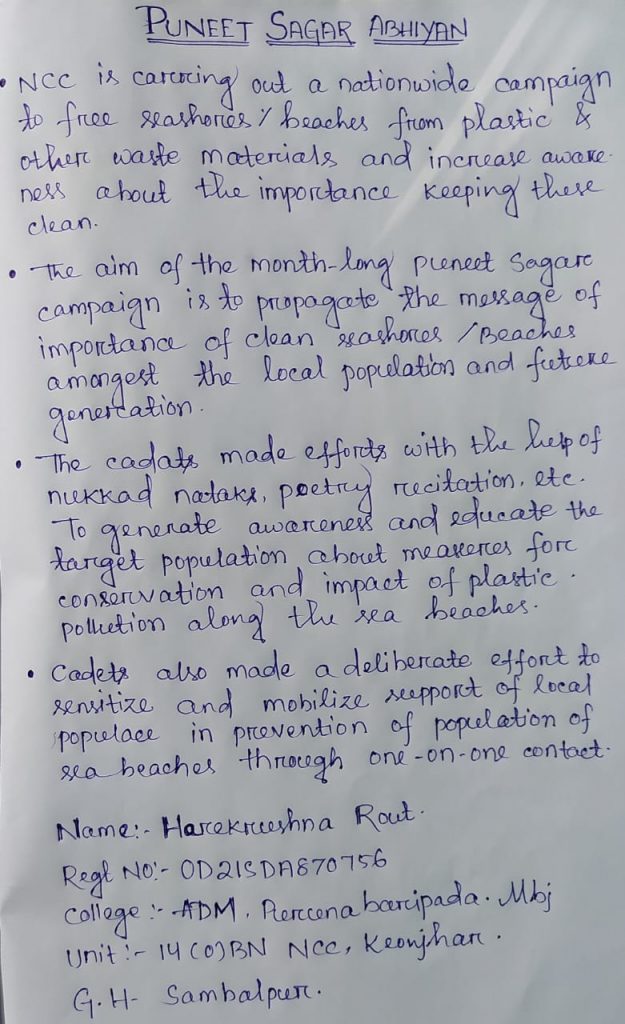 PUNEET SAGAR ABHIYAN
• NCC is carrcing out a nationwide campaign
to free seashores / beaches from plastic &
other waste materials and increase aware-
ness about the importance keeping these
clean.
• The aim of the month-long puneet Sagar
campaign is to propagate the message of
importance of clean seashores / Beaches
amongest the local population and future
generation.
• The cadats made efforts with the help of
nukkad nataks, poetry recitation, etc.
To generate awareness and educate the
target population about measures for
conservation and impact of plastic.
pollution along the sea beaches.
• Cadets also made a deliberate effort to
sensitize and mobilize support of local
populace in prevention of population of
sea beaches through one-on-one contact.
Name:- Harekrushna Rout.
Regt NO:- OD21SDA870756
College :- ADM, Purunabaripada. Mbj
Unit :- 14 (O) BN NCC, Keonjhar.
G.H- Sambalpur.